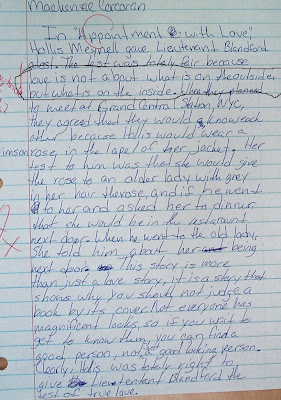 Mackenzie Corcoran
In "Appointment with Love,"
Hollis Meynell gave Lieutenant Blandford
a test. The test was totaly fair because
love is not about what is on the outside,
but what is on the inside. When they planned
to meet at Grand Central Station, NYC,
they agreed that they would know each
other because Hollis would wear a
crimson rose, in the lapel of her jacket. Her
test to him was that she would give
the rose to an older lady with grey
in her hair the rose, and if he went
to her and asked her to dinner
that she would be in the restaraunt
next door. When he went to the old lady,
She told him about her being
next door. This story is more
than just a love story, It is a story that
shows why you should not judge a
book by its cover. Not everyone has
magnificent looks, so if you wait to
get to know them, you can find a
good person, not a good looking person.
Clearly, Hollis was totally right to
give Lieutentant Blandford the
test of true love.